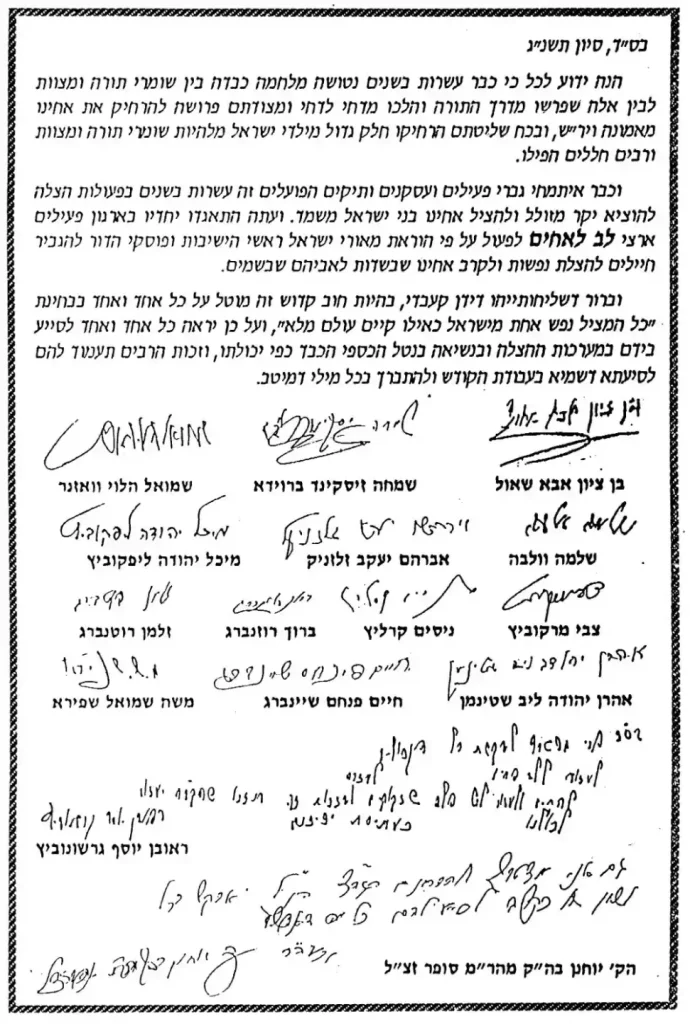 בס"ד, סיון תשנ"ג
הנה ידוע לכל כי כבר עשרות בשנים נטושה מלחמה כבדה בין שומרי תורה ומצוות
לבין אלה שפרשו מדרך התורה והלכו מדחי לדחי ומצודתם פרושה להרחיק את אחינו
מאמונה ויר"ש, ובכח שליטתם הרחיקו חלק גדול מילדי ישראל מלהיות שומרי תורה ומצוות
ורבים חללים הפילו.
וכבר איתמחי גברי פעילים ועסקנים ותיקים הפועלים זה עשרות בשנים בפעולות הצלה
להוציא יקר מזולל ולהציל אחינו בני ישראל משמד. ועתה התאגדו יחדיו בארגון פעילים
ארצי לב לאחים לפעול על פי הוראת מאורי ישראל ראשי הישיבות ופוסקי הדור להגביר
חיילים להצלת נפשות ולקרב אחינו שבשדות לאביהם שבשמים.
וברור דשליחותייהו דידן קעבדי, בהיות חוב קדוש זה מוטל על כל אחד ואחד בבחינת
"כל המציל נפש אחת מישראל כאילו קיים עולם מלא", ועל כן יראה כל אחד ואחד לסייע
בידם במערכות ההצלה ובנשיאה בנטל הכספי הכבד כפי יכולתו, וזכות הרבים תעמוד להם
לסיעתא דשמיא בעבודת הקודש ולהתברך בכל מילי דמיטב.
בן ציון אבא שאול שמחה זיסקינד ברוידא שמואל הלוי וואזנר
שלמה וולבה אברהם יעקב זלזניק מיכל יהודה ליפקוביץ
צבי מרקוביץ ניסים קרליץ ברוך רוזנברג זלמן רוטנברג
אהרן יהודה ליב שטינמן חיים פנחס שיינברג משה שמואל שפירא
ראובן יוסף גרשונוביץ
גם אני מצטרף
הק' יוחנן בה"ק מהר"מ סופר זצ"ל